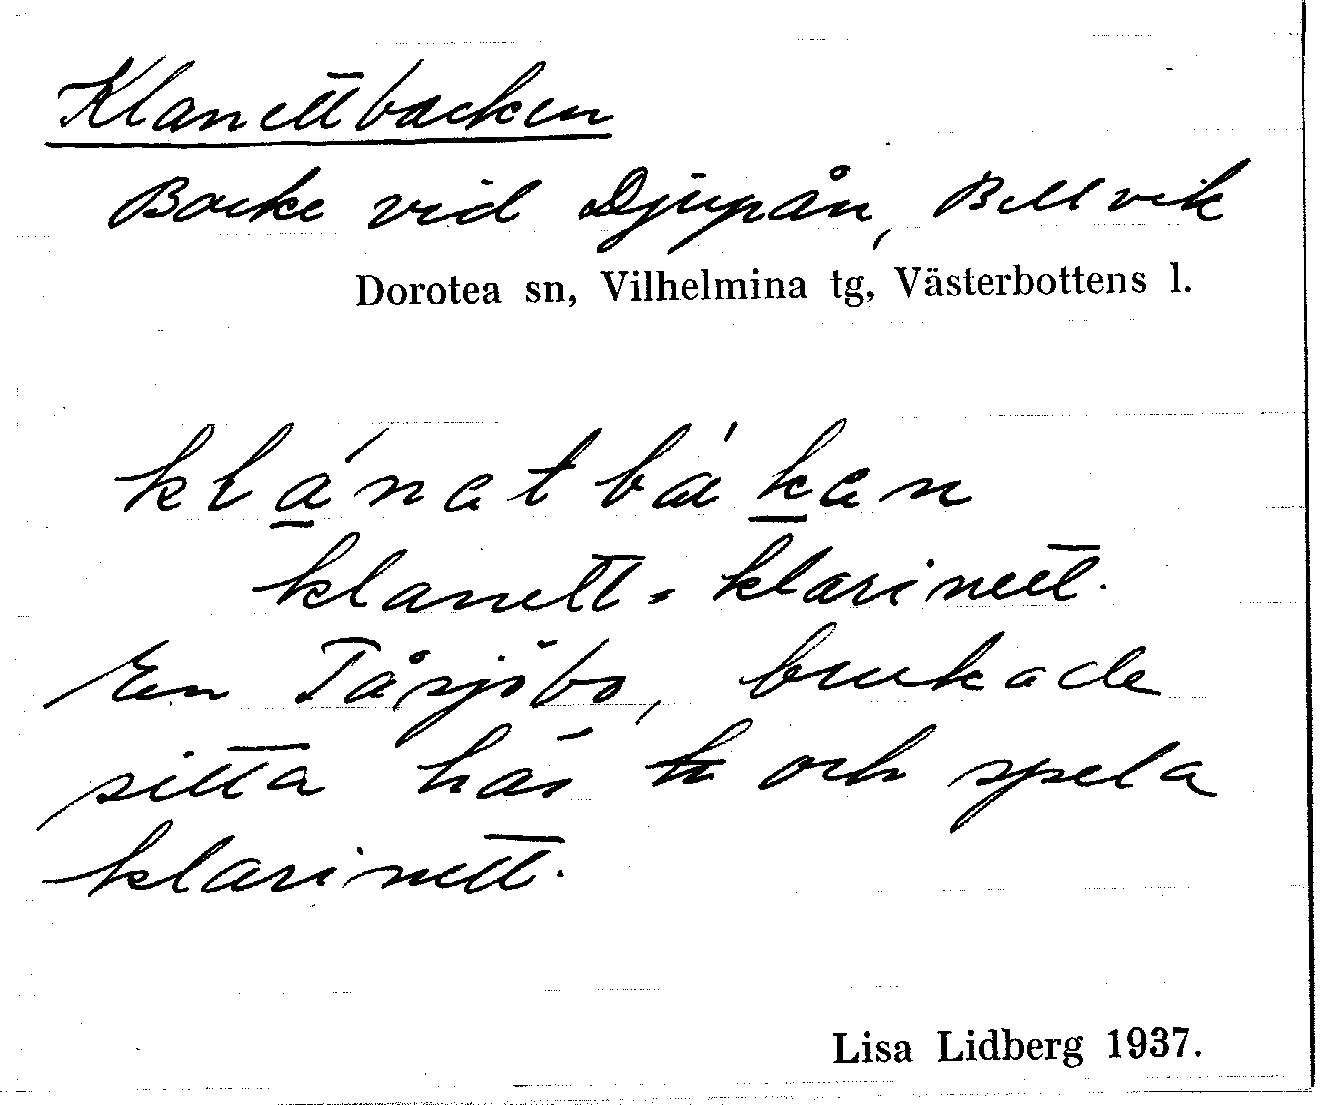 Klanettbacken
Backe vid Djupån, Bellvik
Dorotea sn, Vilhelmina tg, Västerbottens l.
klánatbákan
klanett = klarinett.
En Tåsjöbo, brukade
sitta här och spela
klarinett.
Lisa Lidberg 1937.